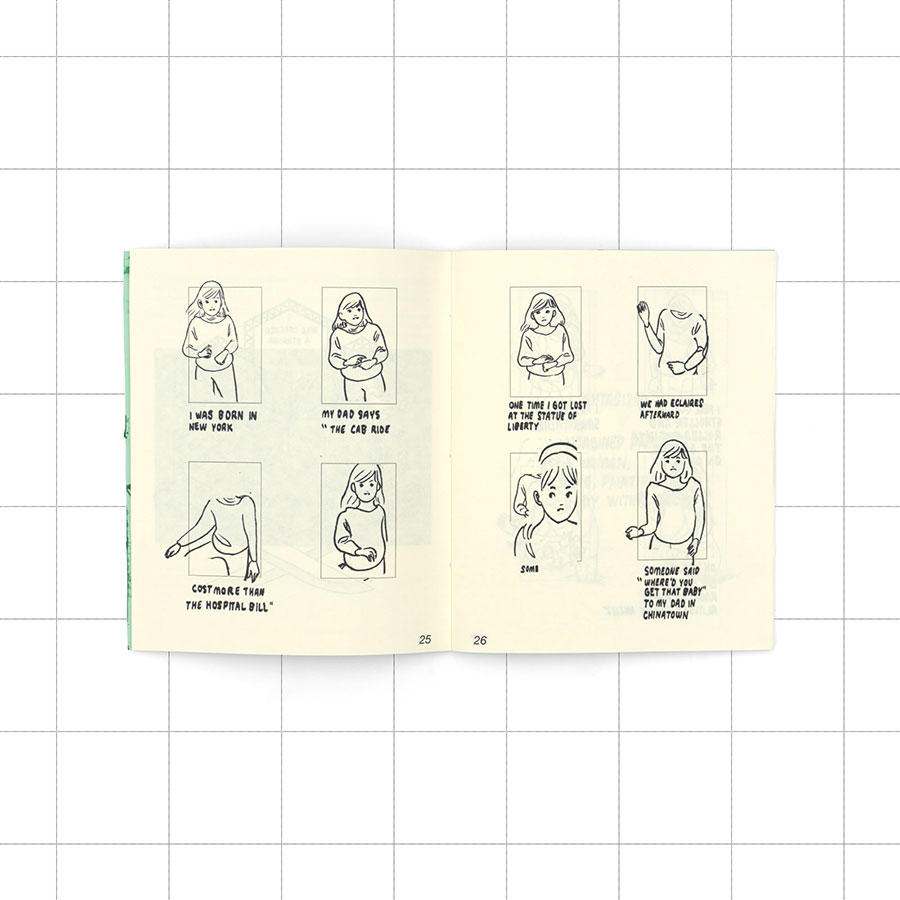 I WAS BORN IN
NEW YORK
MY DAD SAYS
"THE CAB RIDE
COST MORE THAN
THE HOSPITAL BILL"
25
ONE TIME I GOT LOST
AT THE STATUE OF
LIBERTY
WE HAD ECLAIRES
AFTERWARD
SOME
SOMEONE SAID
"WHERE'D YOU
GET THAT BABY"
TO MY DAD IN
CHINATOWN
26